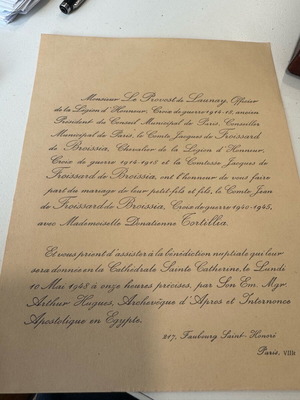 Monsieur Le Provost de Launay, Officier
de la Légion d'Honneur, Croix de guerre 1914-18, ancien
Président du Conseil Municipal de Paris, Conseiller
Municipal de Paris, le Comte Jacques de Froissard
de Broissia, Chevalier de la Légion d'Honneur,
Croix de guerre 1914-1918 et la Comtesse Jacques de
Froissard de Broissia, ont l'honneur de vous faire
part du mariage de leur petit-fils et fils, le Comte Jean
de Froissard de Broissia, Croix de guerre 1940-1945,
avec Mademoiselle Donatienne Tortillia.
Et vous prient d'assister à la bénédiction nuptiale qui leur
sera donnée en la Cathédrale Sainte Catherine, le Lundi
10 Mai 1948 à onze heures précises, par Son Em. Mgr.
Arthur Hugues, Archevêque d'Apros et Internonce
Apostolique en Egypte.
217, Faubourg Saint-Honoré
Paris, VIIIe